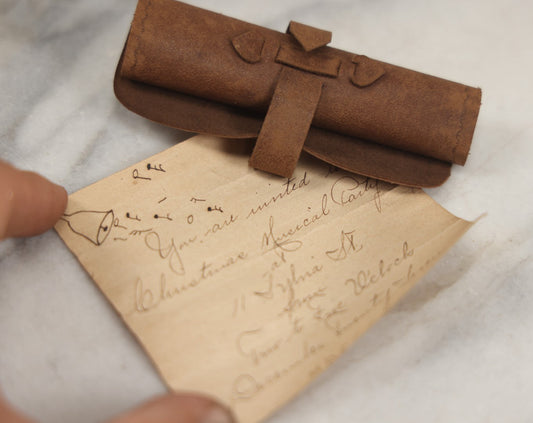 You are invited to
Christmas Musical Party
at
11 Sylvia St
from
Two to Five O'clock
December twenty-